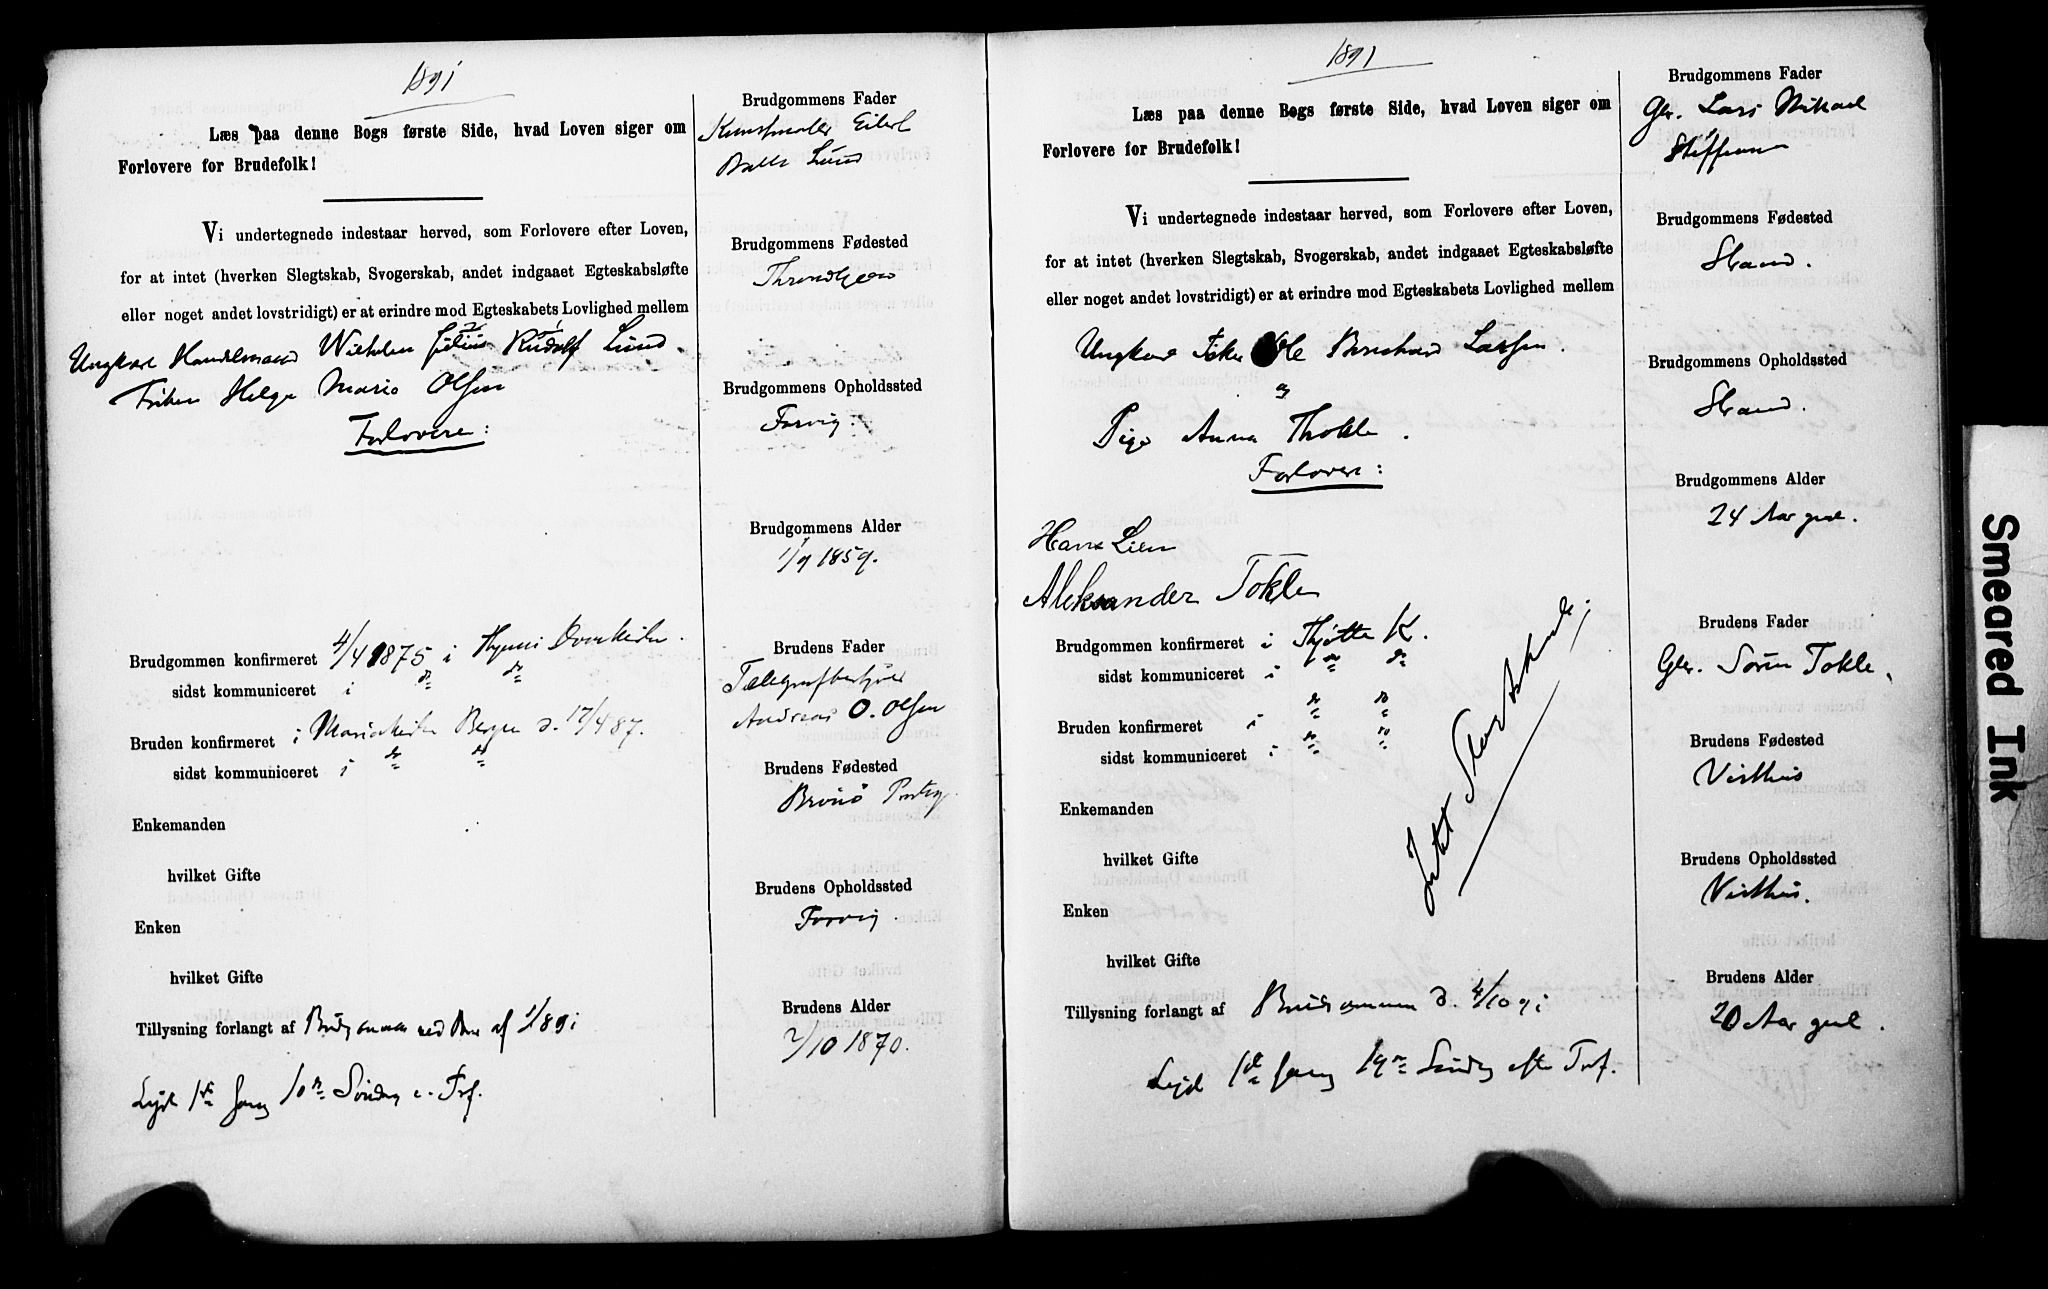 1891
Læs paa denne Bogs første Side, hvad Loven siger om
Forlovere for Brudefolk!
Vi undertegnede indestaar herved, som Forlovere efter Loven,
for at intet (hverken Slegtskab, Svogerskab, andet indgaaet Egteskabsløfte
eller noget andet lovstridigt) er at erindre mod Egteskabets Lovlighed mellem
Ungkarl Handelsmand Wilhelm Julius Rudolf Lund
Frøken Helga Maria Olsen
Forlovere:
Brudgommen konfirmeret 4/4 1875 i
sidst kommuniceret i do do
Bruden konfirmeret i Mariakirken Bergen d. 17/4 87.
sidst kommuniceret i do do
Enkemanden
hvilket Gifte
Enken
hvilket Gifte
Tillysning forlangt af Brudgommen
Lyst 1ste Gang 10de Søndag e. Tref.
Brudgommens Fader
Kunstmaler Eilert
Balle Lund
Brudgommens Fødested
Throndhjem
Brudgommens Opholdssted
Forvig.
Brudgommens Alder
1/9 1859.
Brudens Fader
Telegrafbestyrer
Andreas O. Olsen
Brudens Fødested
Brønø Prstg.
Brudens Opholdssted
Forvig.
Brudens Alder
2/10 1870.
1891
Læs paa denne Bogs første Side, hvad Loven siger om
Forlovere for Brudefolk!
Vi undertegnede indestaar herved, som Forlovere efter Loven,
for at intet (hverken Slegtskab, Svogerskab, andet indgaaet Egteskabsløfte
eller noget andet lovstridigt) er at erindre mod Egteskabets Lovlighed mellem
Ungkarl Fisker Ole Bernhard Larsen.
og
Pige Anna Thokle.
Forlovere:
Hans Lien
Aleksander Tokle
Brudgommen konfirmeret i Thjøtta K.
sidst kommuniceret i do do
Bruden konfirmeret i do do
sidst kommuniceret i do do
Intet
Enkemanden
hvilket Gifte
Enken
hvilket Gifte
Tillysning forlangt af Brudgommen d. 4/10 91
Lyst 1ste Gang 19de Søndag efter Tref.
Brudgommens Fader
Gbr. Lars Mikael
Steffensen
Brudgommens Fødested
Strand.
Brudgommens Opholdssted
Strand.
Brudgommens Alder
24 Aar gml.
Brudens Fader
Gbr. Søren Tokle.
Brudens Fødested
Visthus
Brudens Opholdssted
Visthus.
Brudens Alder
20 Aar gml.
Smeared Ink